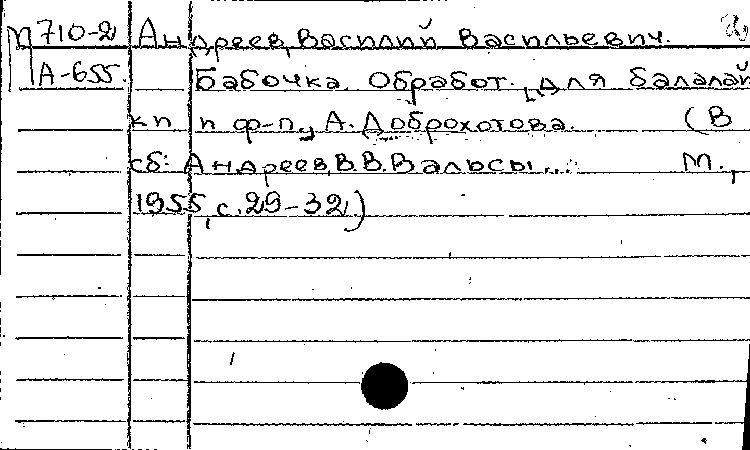 М 710-2 Андреев, Василий Васильевич.
А-655. Бабочка. Обработ. для балалай
ки и ф-п. А. Доброхотова. (В
сб: Андреев, В.В. Вальсы... М.,
1955, с. 29-32)